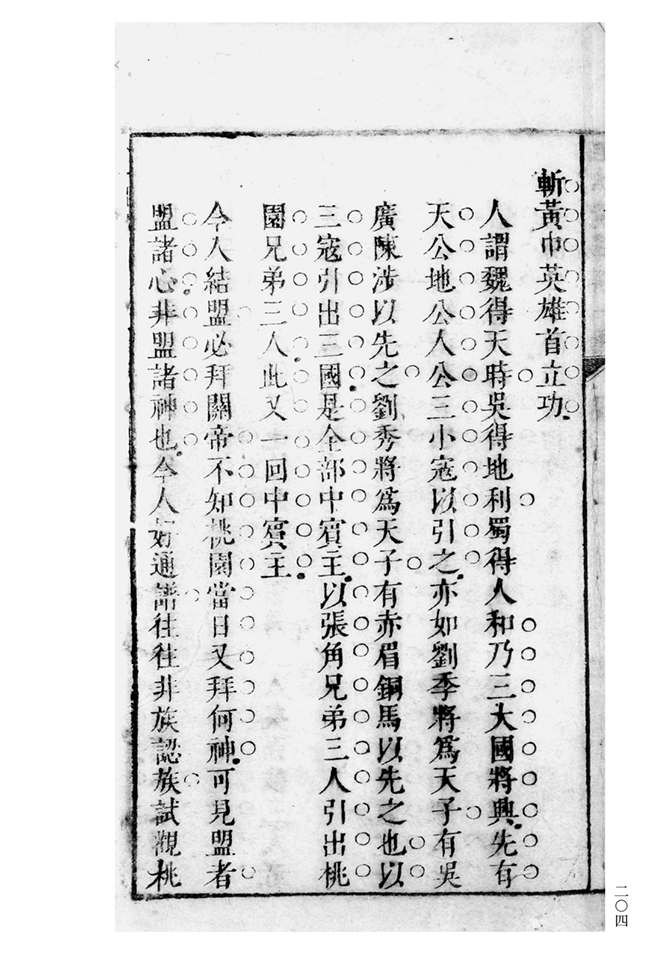 斬黃巾英雄首立功
人謂魏得天時吳得地利蜀得人和乃三大國將興先有
天公地公人公三小寇以引之亦如劉季將爲天子有吳
廣陳涉以先之劉秀將爲天子有赤眉銅馬以先之也以
三寇引出三國是全部中賓主以張角兄弟三人引出桃
園兄弟三人此又一回中賓主
今人結盟必拜關帝不知桃園當日又拜何神可見盟者
盟諸心非盟諸神也今人好通譜往往非族認族試觀桃
二〇四